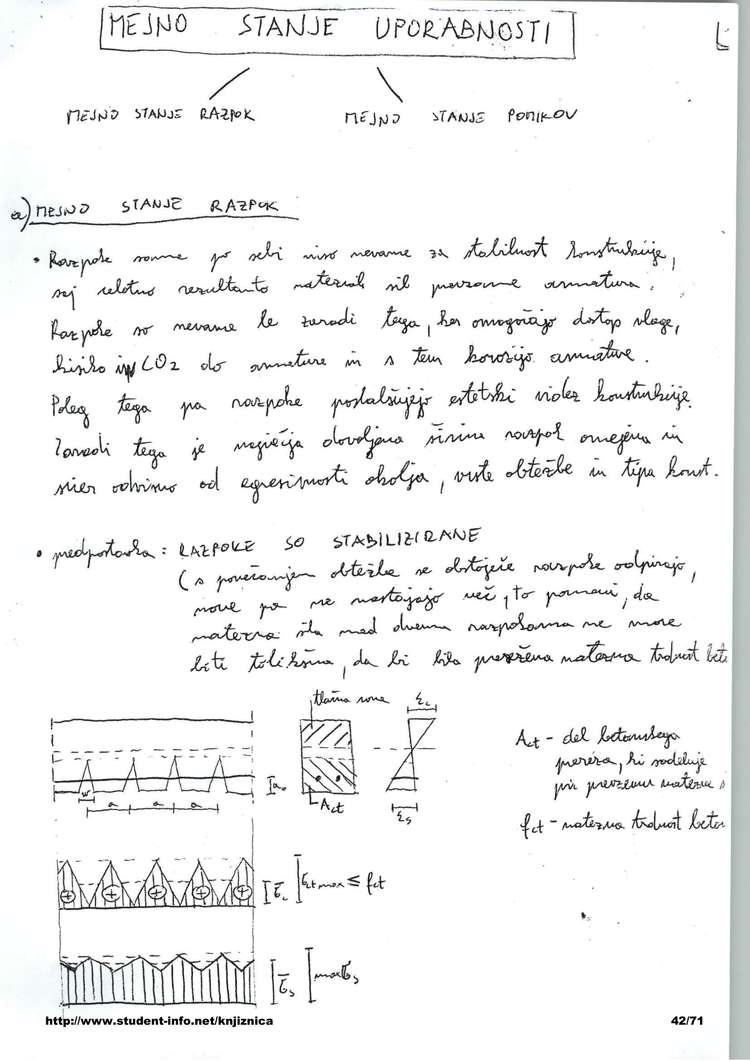 MEJNO STANJE UPORABNOSTI
MEJNO STANJE RAZPOK
MEJNO STANJE POMIKOV
a) MEJNO STANJE RAZPOK
• Razpoke same po sebi niso nevarne za stabilnost konstrukcije,
saj celotno rezultanto nateznih sil prevzame armatura.
Razpoke so nevarne le zaradi tega, ker omogočajo dostop vlage,
kisika in CO2 do armature in s tem korozijo armature.
Poleg tega pa razpoke poslabšujejo estetski videz konstrukcije.
Zaradi tega je največja dovoljena širina razpok omejena in
sicer odvisno od agresivnosti okolja, vrste obtežbe in tipa konst.
• predpostavka: RAZPOKE SO STABILIZIRANE
(s povečanjem obtežbe se obstoječe razpoke odpirajo,
nove pa ne nastajajo več, to pomeni, da
natezna sila med dvema razpokama ne more
biti tolikšna, da bi bila presežena natezna trdnost bet
tlačna cona
εc
Act - del betonskega
prereza, ki sodeluje
pri prevzemu natezne s
w
a a a
ao
Act
εs
fct - natezna trdnost beton
σ̄c
σct max ≤ fct
σ̄s
max σs
http://www.student-info.net/knjiznica
42/71